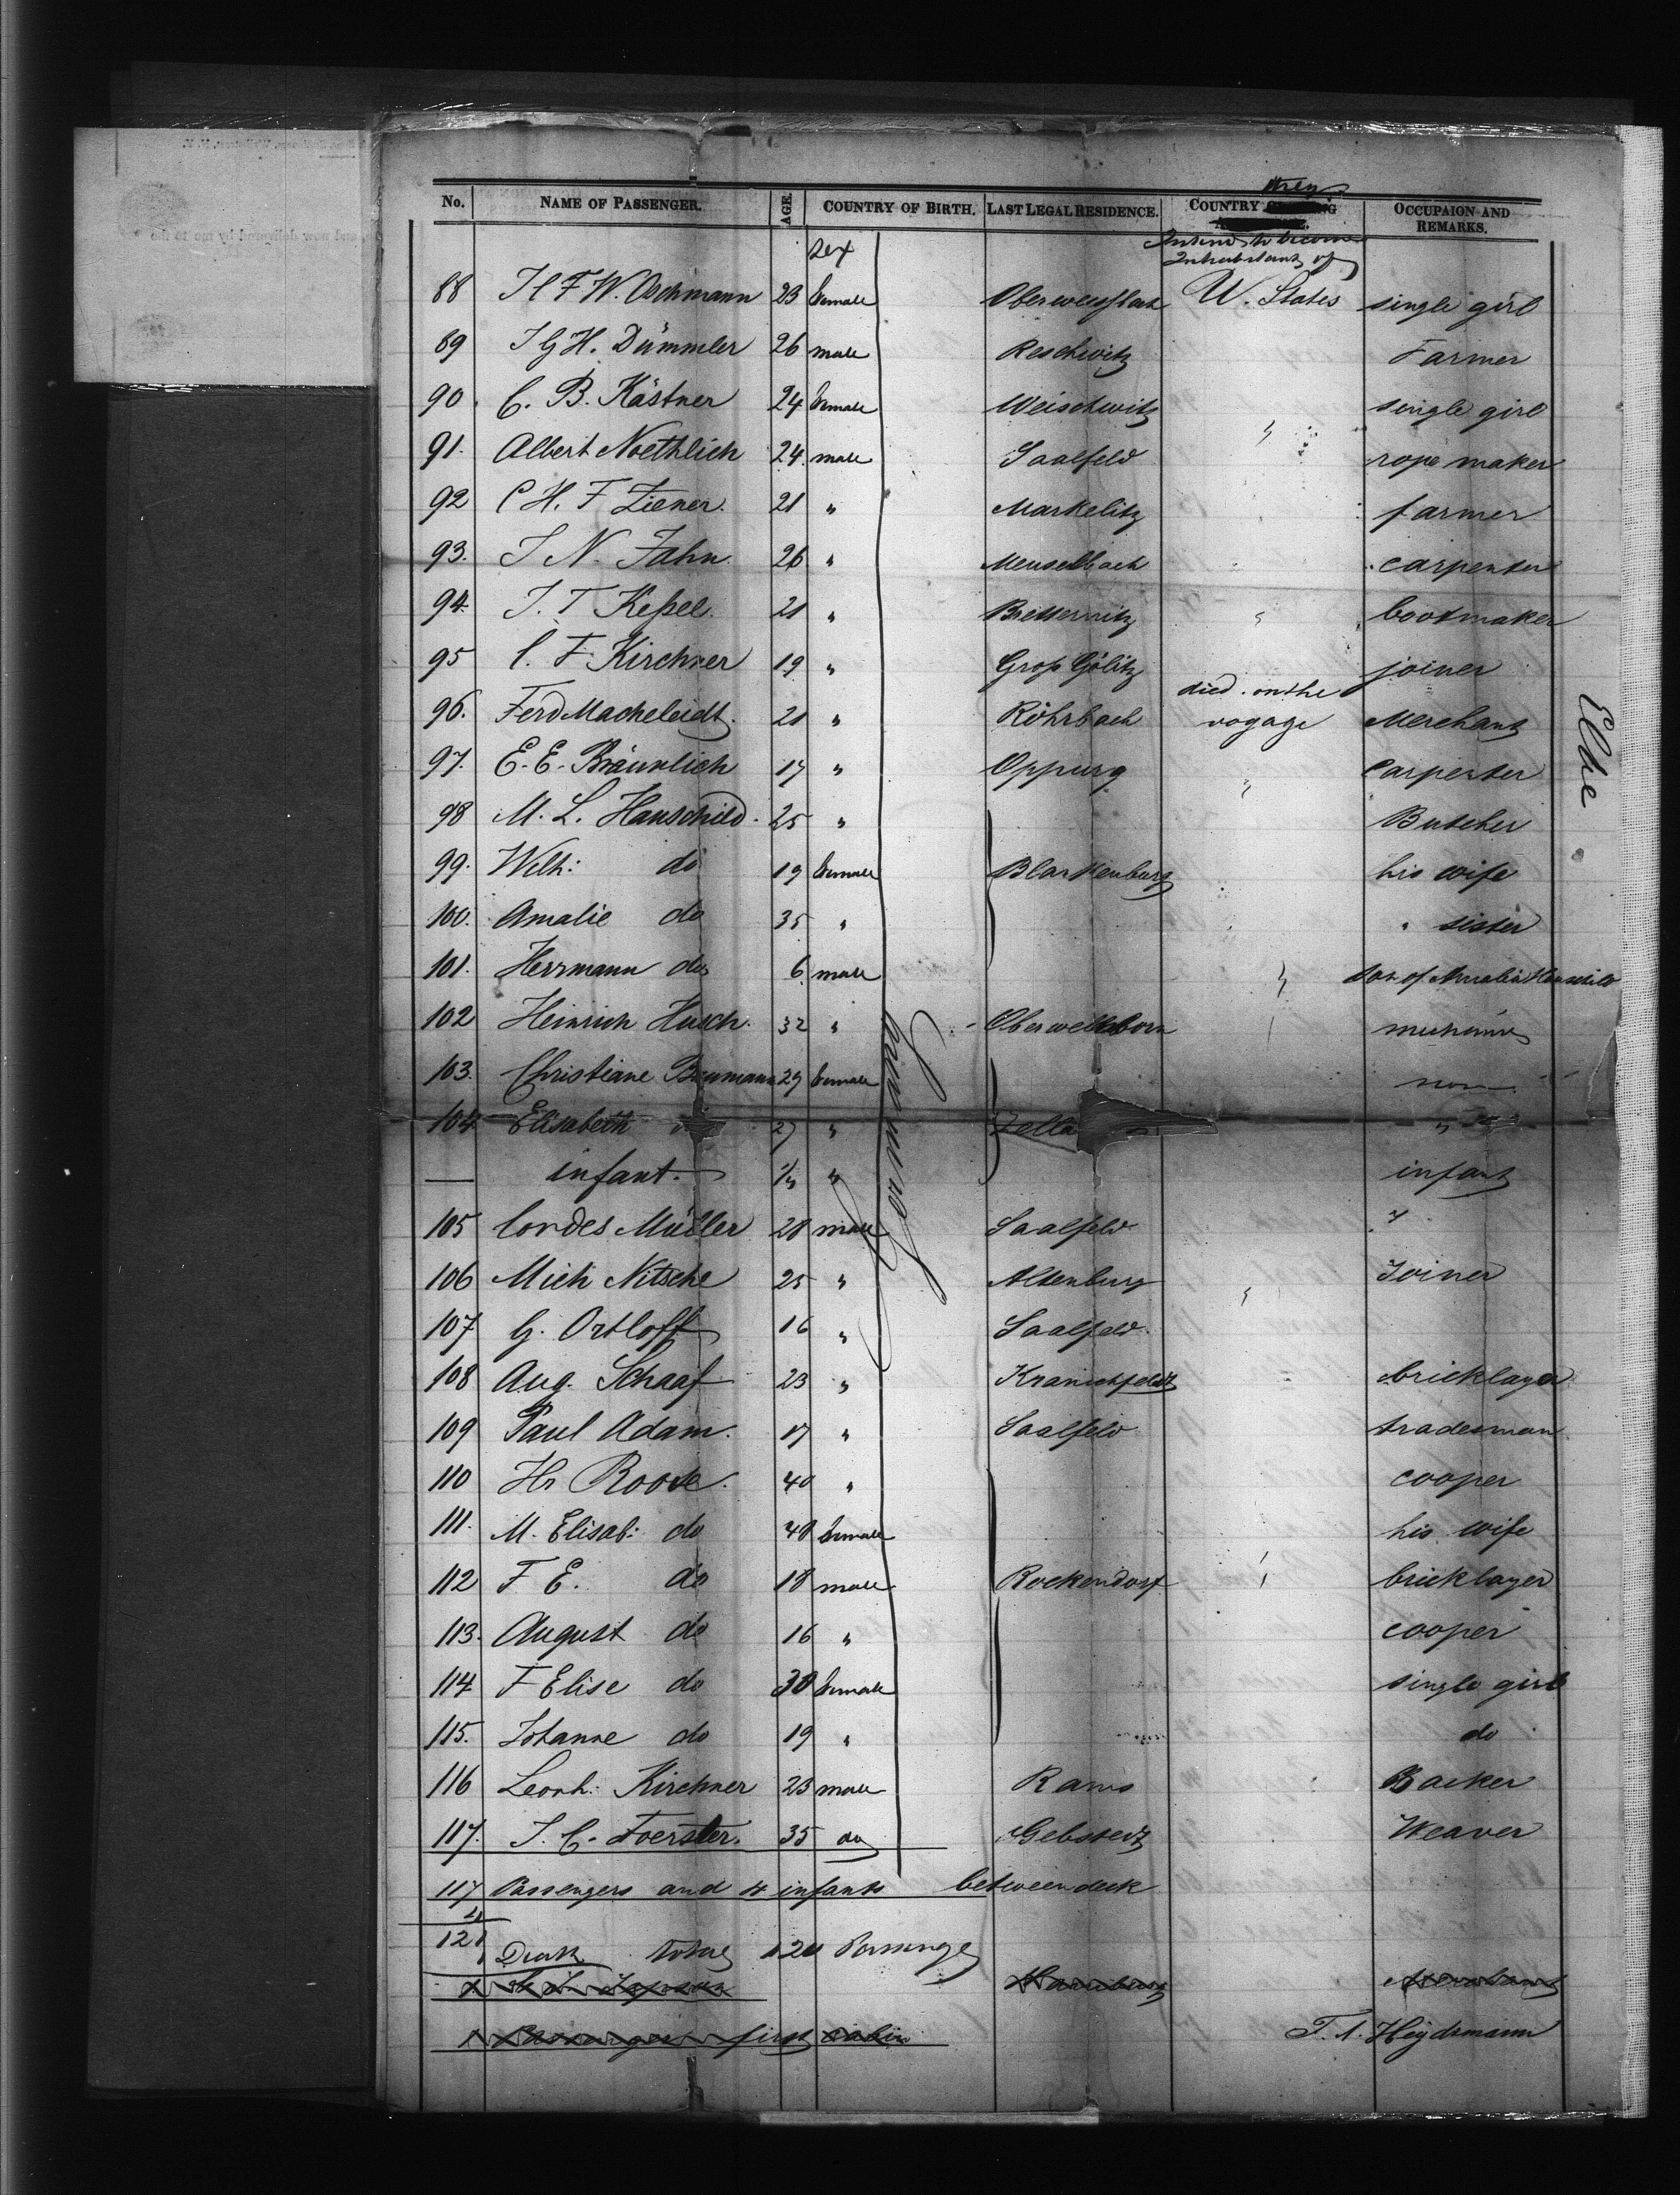 No. NAME OF PASSENGER. AGE. COUNTRY OF BIRTH. LAST LEGAL RESIDENCE. COUNTRY they OCCUPAION AND REMARKS.
Sex Intend to become Inhabitants of
88 F W. Aschmann 23 female U. States single girl
89 J G H. Dümmler 26 male Reschwitz Farmer
90 C. B. Kästner 24 female Weischwitz single girl
91. Albert Noethlich 24 male Saalfeld " rope maker
92 C H. F Ziener. 21 " Markelitz farmer
93. J N. Jahn 26 " Meuselbach carpenter
94. J. T Keßel. 21 " " bootmaker
95 C. F Kirchner 19 " Groß Gölitz joiner
96. Ferd Macheleidt. 21 " Röhrbach died on the voyage Merchant
97. E. E. Bräunlich 17 " Oppurg " Carpenter
98 M. L. Hauschild. 25 " Butcher
99. Wilh: do 19 female Blankenburg his wife
100. Amalie do 35 " " sister
101. Herrmann do 6 male " son of Amalia Hauschild
102 Heinrich Husch. 32 " Oberwellborn
103. Christiane Baumann 29 female non
104 Elisabeth 27 " Zella "
— infant. "  infant
105 Cordes Müller 28 male Saalfeld "
106 Mich Nitsche 25 " Altenburg " Joiner
107 G. Ortloff 16 " Saalfeld.
108 Aug. Schaaf 23 " Kranichfeldt " bricklayer
109 Paul Adam. 17 " Saalfeld tradesman
110 Hr Roose. 40 " cooper
111. M. Elisab: do 40 female his wife
112 F E. do 18 male Rockendorf " bricklayer
113. August do 16 " cooper
114 F Elise do 30 female single girl
115. Johanne do 19 " do
116 Leonh: Kirchner 23 male Ranis Backer
117. J. C. Foerster. 35 do Weaver
Germany
Elbe
117 Passengers and 4 infants between deck
4
121
total Passenger
Hamburg Merchant
Passenger first Cabin
Heydemann